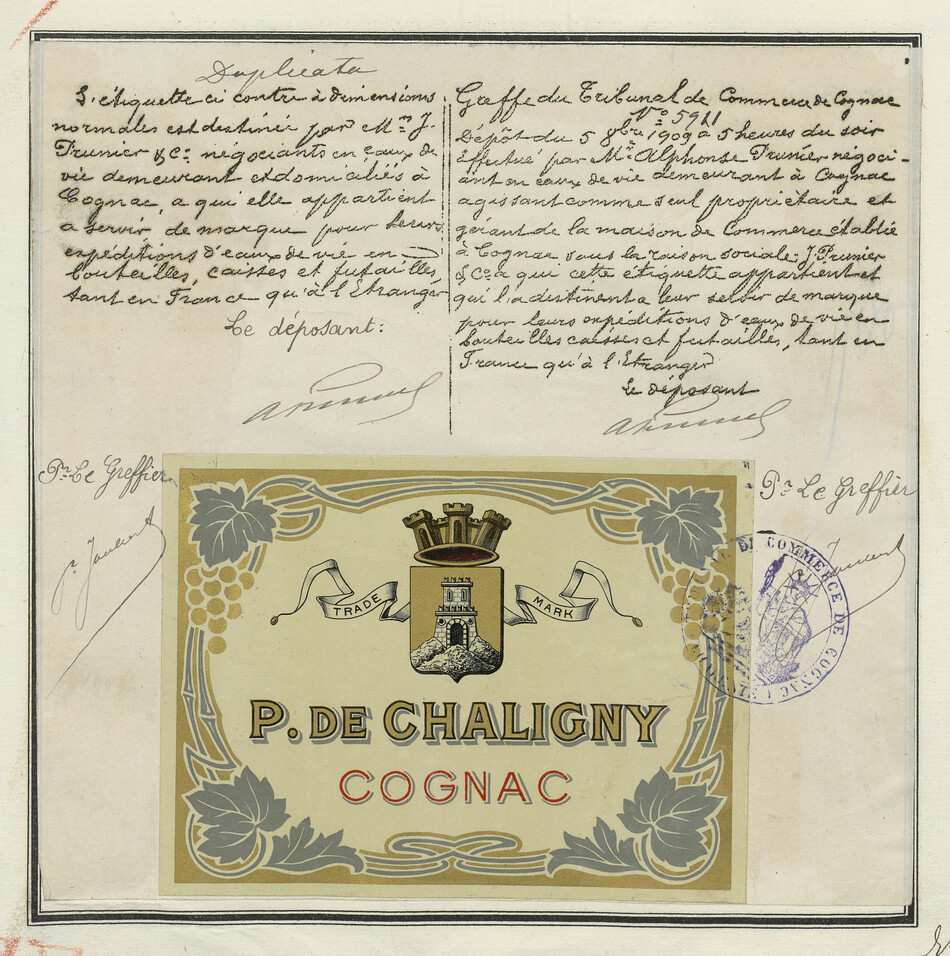 Duplicata
L'étiquette ci contre à dimensions
normales est destinée par Mrs J.
Prunier & Cie négociants en eaux de
vie demeurant et domiciliés à
Cognac, a qui elle appartient
a servir de marque pour leurs
expéditions d'eaux de vie en
bouteilles, caisses et futailles,
tant en France qu'à l'Etranger
Le déposant:
Greffe du Tribunal de Commerce de Cognac
No 5921
Dépôt du 5 8bre 1909 à 5 heures du soir
éffectué par Mr Alphonse Prunier négoci-
ant en eaux de vie demeurant à Cognac
agissant comme seul propriétaire et
gérant de la maison de Commerce établie
à Cognac sous la raison sociale: J. Prunier
& Co a qui cette étiquette appartient et
qui l'a destinent a leur servir de marque
pour leurs expéditions d'eaux de vie en
bouteilles caisses et futailles, tant en
France qu'à l'Etranger
Le déposant
APrunier
APrunier
Pr Le Greffier
Pr Le Greffier
TRADE MARK
P. DE CHALIGNY
COGNAC
DE COMMERCE DE COGNAC